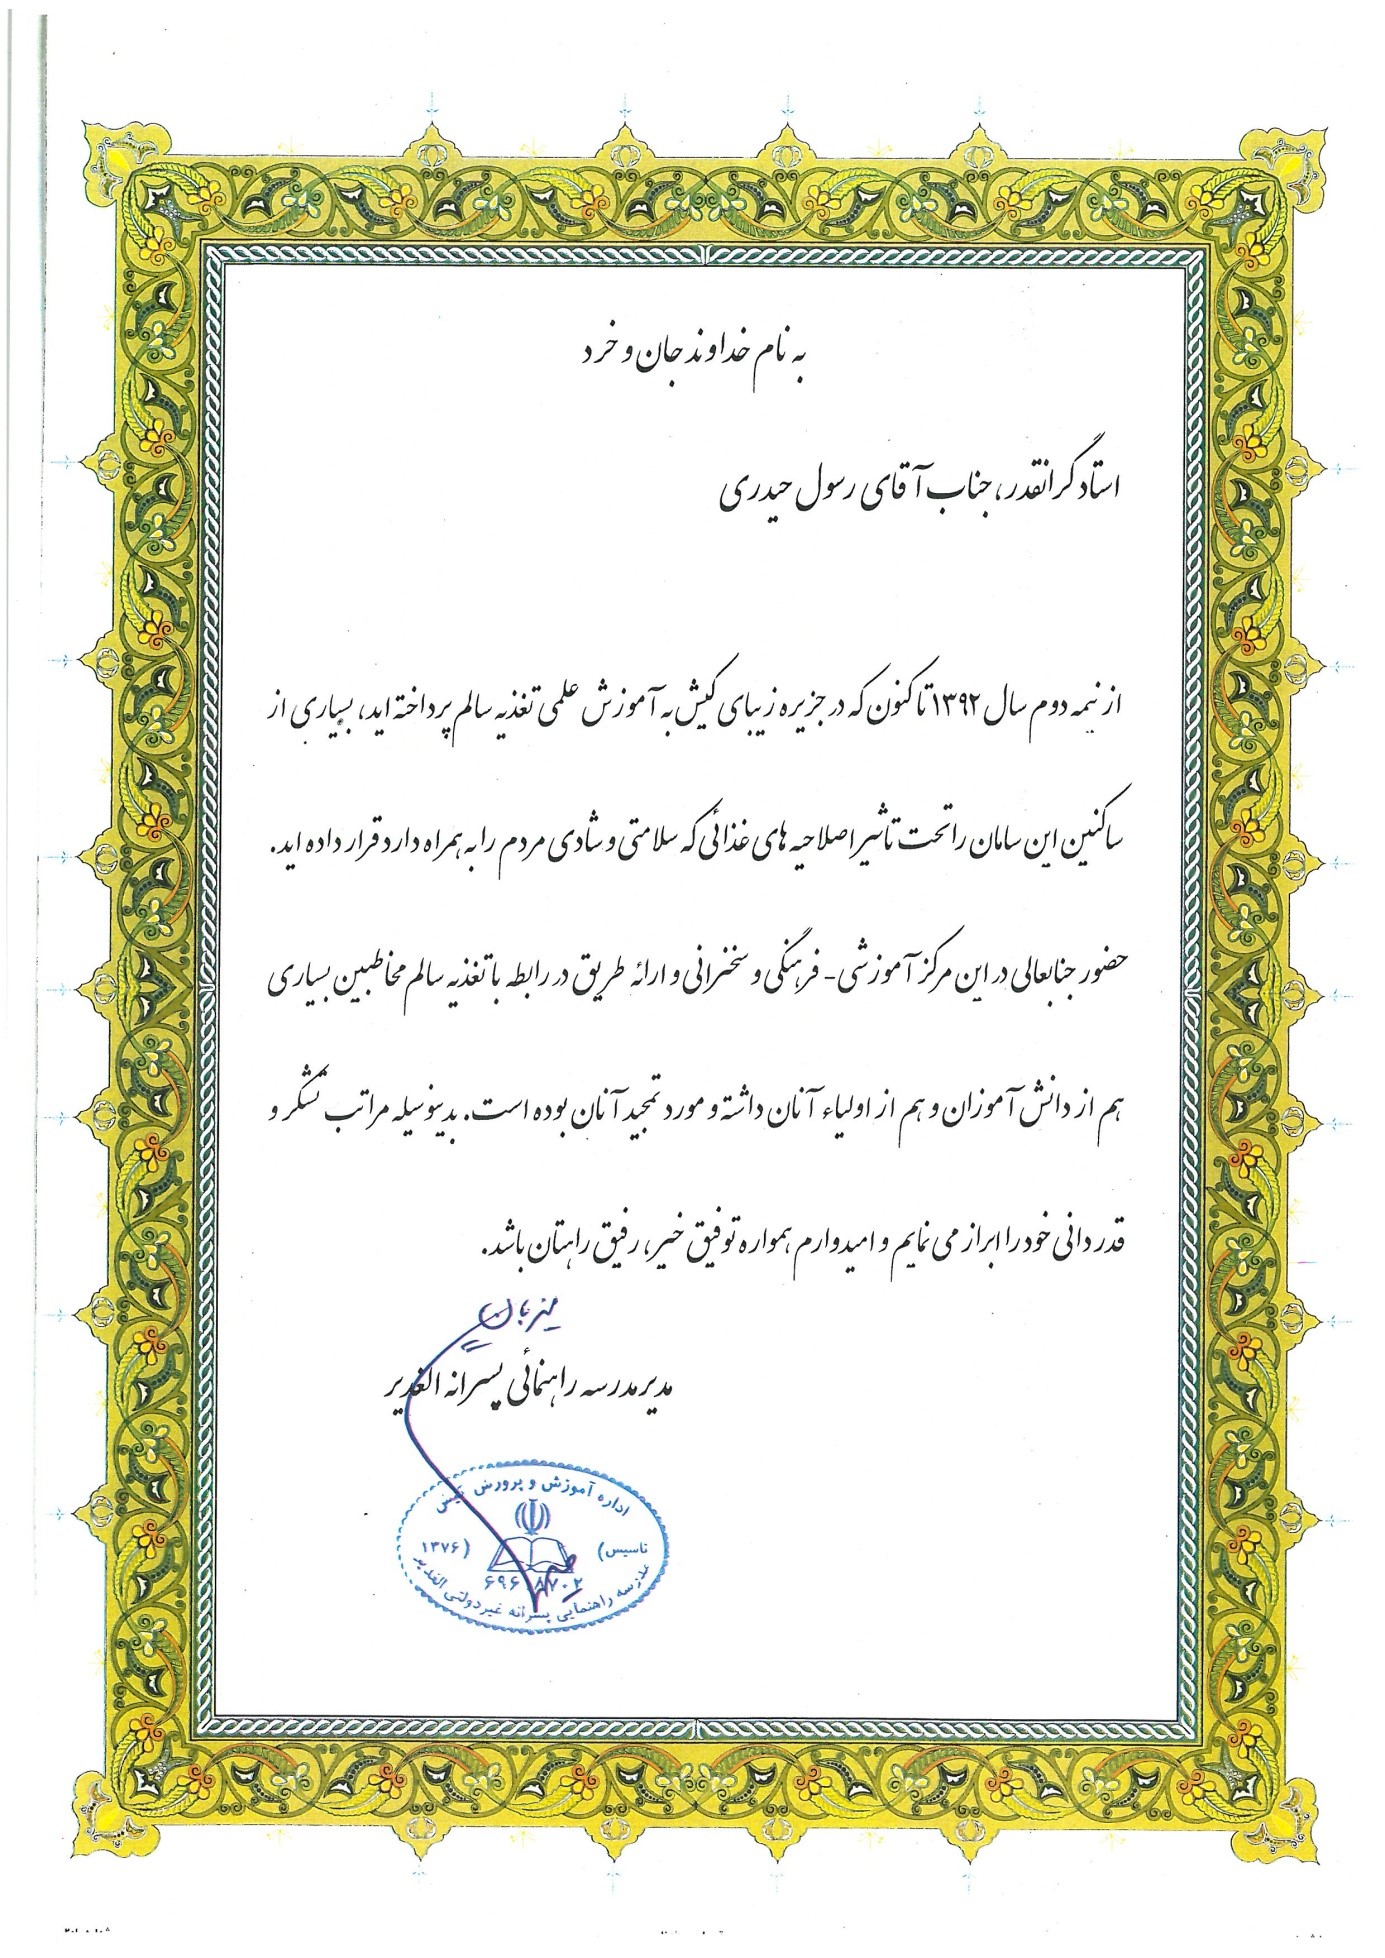 به نام خداوند جان و خرد
استاد گرانقدر، جناب آقای رسول حیدری
از نیمه دوم سال ۱۳۹۲ تا کنون که در جزیره زیبای کیش به آموزش علمی تغذیه سالم پرداخته اید، بسیاری از
ساکنین این سامان را تحت تأثیر اصلاحیه های غذائی که سلامتی و شادی مردم را به همراه دارد قرار داده اید.
حضور جنابعالی در این مرکز آموزشی - فرهنگی و سخنرانی و ارائه طریق در رابطه با تغذیه سالم مخاطبین بسیاری
هم از دانش آموزان و هم از اولیاء آنان داشته و مورد تمجید آنان بوده است. بدینوسیله مراتب تشکر و
قدردانی خود را ابراز می نمایم و امیدوارم همواره توفیق خیر، رفیق راهتان باشد.
مدیر مدرسه راهنمائی پسرانه الغدیر
اداره آموزش و پرورش کیش
(تاسیس ۱۳۷۶)
مدرسه راهنمایی پسرانه غیردولتی الغدیر